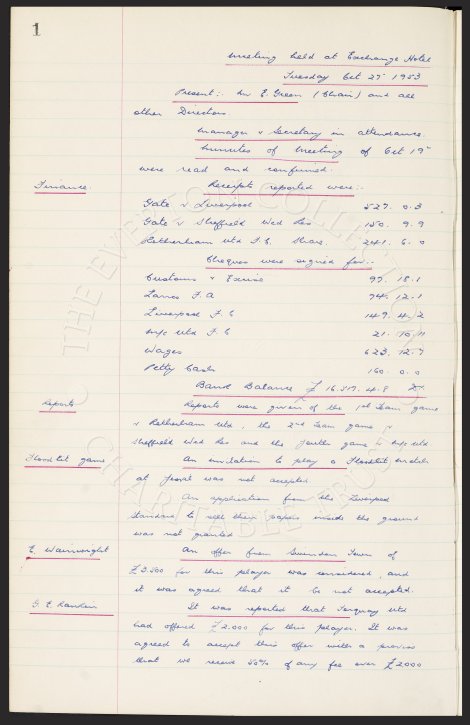 1
Meeting held at Exchange Hotel
Tuesday Oct 27th 1953
Present:- Mr E. Green (Chair) and all
other Directors
Manager & Secretary in attendance.
Minutes of Meeting of Oct 19th
were read and confirmed.
Finance. Receipts reported were:-
Gate v Liverpool 527. 0. 3
Gate v Sheffield Wed Res 150. 9. 9
Rotherham Utd F.C. Share. 241. 6. 0
Cheques were signed for:-
Customs & Excise 97. 18. 1
Lancs F.A 74. 12. 1
Liverpool F.C 149. 4. 2
Utd F.C 21. 10. 11
Wages 623. 12. 7
Petty Cash 160. 0. 0
Bank Balance £16.517. 4. 8
Reports Reports were given of the 1st Team game
v Rotherham Utd, the 2nd Team game v
Sheffield Wed Res and the Youths game v Utd
Floodlit game An invitation to play a Floodlit match
at was not accepted
An application from the Liverpool
Standard to sell their papers inside the ground
was not granted
E. Wainwright An offer from Swindon Town of
for this player was considered, and
it was agreed that it be not accepted.
G. E. It was reported that Torquay Utd
had offered £2.000 for this player. It was
agreed to accept this offer with a proviso
that we receive 50% of any fee over £2000
THE EVERTON COLLECTION
CHARITABLE TRUST